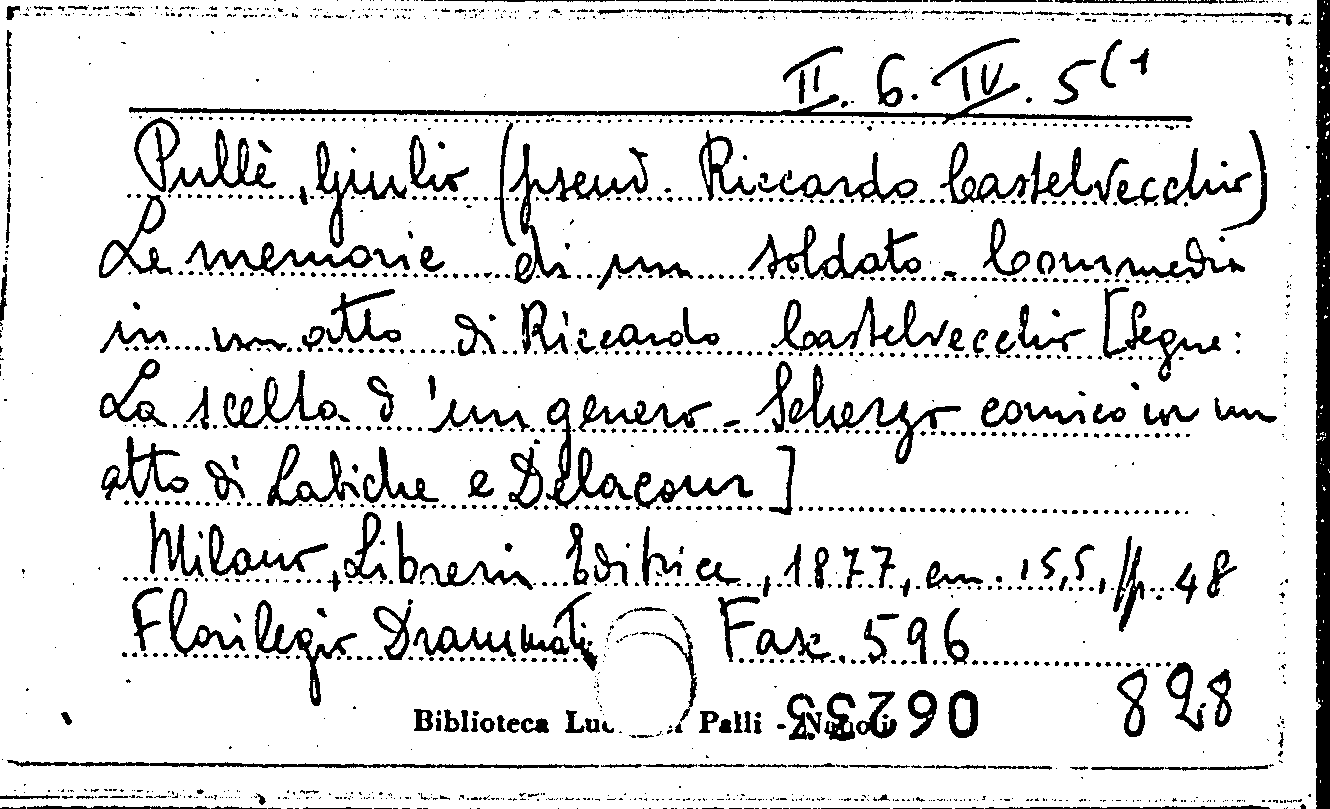 II. 6. IV. 5(1
Pullè, Giulio (pseud. Riccardo Castelvecchio)
Le memorie di un soldato - Commedia
in un atto di Riccardo Castelvecchio [Segue:
La scelta d'un genero - Scherzo comico in un
atto di Labiche e Delacour]
Milano, Libreria Editrice, 1877, cm. 15,5, pp. 48
Florilegio Drammati Fasc. 596
828
Biblioteca Luc Palli - Napoli